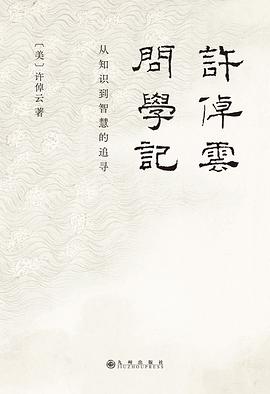 許倬雲
問學記
从知识到智慧的追寻
〔美〕许倬云 著
九州出版社
JIUZHOUPRESS